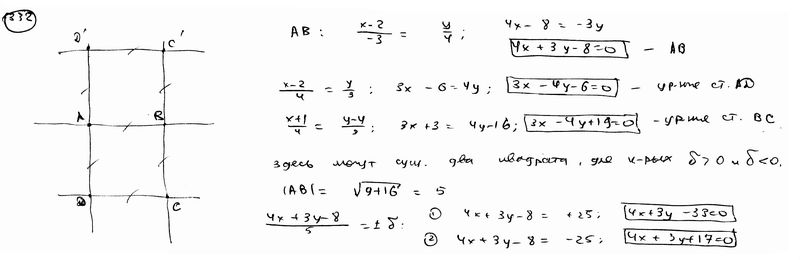 332
D' C'
A B
D C
AB: x-2/-3 = y/4; 4x - 8 = -3y
4x + 3y - 8 = 0 - AB
x-2/4 = y/3; 3x - 6 = 4y; 3x - 4y - 6 = 0 - ур-ние ст. AD
x+1/4 = y-4/3; 3x + 3 = 4y - 16; 3x - 4y + 19 = 0 - ур-ние ст. BC.
здесь могут сущ. два квадрата, для к-рых δ > 0 и δ < 0.
|AB| = √9+16 = 5
4x + 3y - 8/5 = ± δ: ① 4x + 3y - 8 = +25; 4x + 3y - 33 = 0
② 4x + 3y - 8 = -25; 4x + 3y + 17 = 0